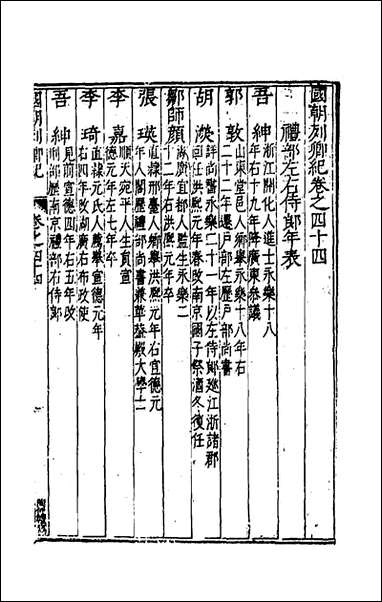 國朝列卿紀卷之四十四
禮部左右侍郎年表
吾紳 浙江開化人進士永樂十八
年右十九年降廣東叅議
郭敦 山東堂邑人鄉舉永樂十八年右
二十二年遷戶部左歷戶部尚書
胡濙 詳尚書永樂二十一年以左侍郎廵江浙諸郡
回任洪熙元年春改南京國子祭酒冬復任
鄒師顏 湖廣宜都人監生永樂二
十二年右洪熙元年卒
張瑛 直隸邢臺人鄉舉洪熙元年右宣德元
年人閣歷禮部尚書兼華葢殿大學士
李嘉 順天宛平人生員宣
德元年左七年卒
李琦 直隸元氏人薦舉宣德元年
右四年改湖廣右布政使
吾紳 見前宣德四年右五年改
刑部歷南京禮部右侍郎
國朝列卿紀 卷之四十四